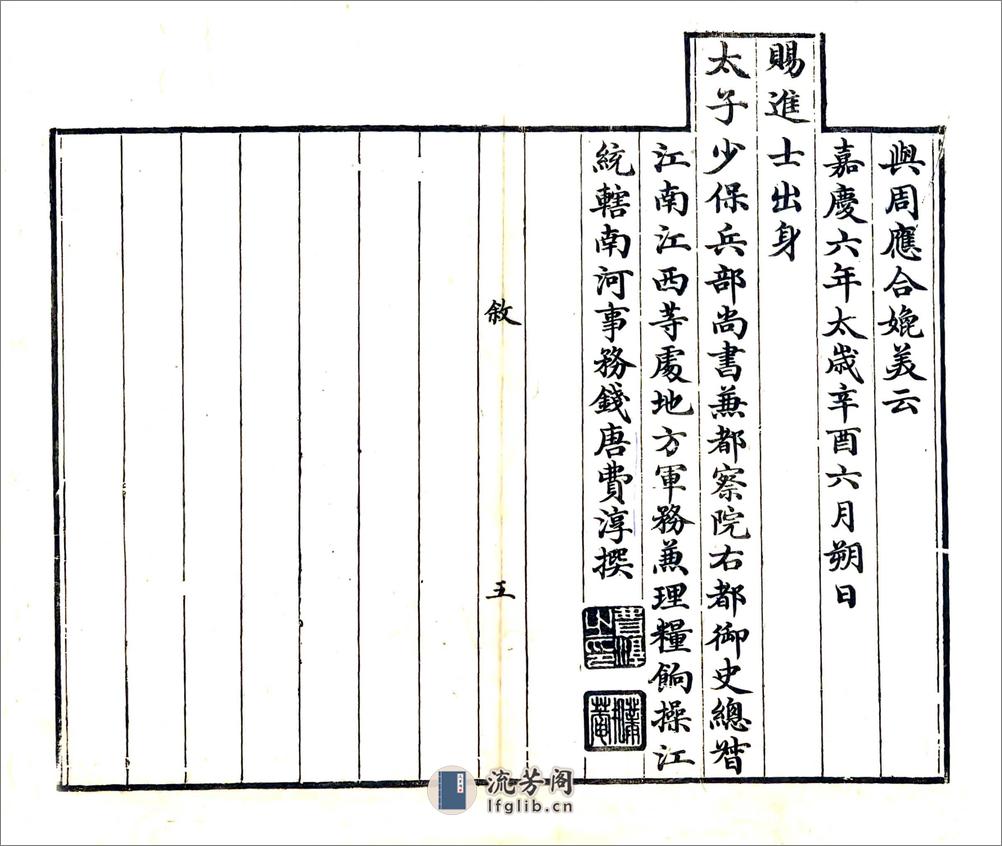 與周應合媲美云
嘉慶六年太歲辛酉六月朔日
賜進士出身
太子少保兵部尚書兼都察院右都御史總督
江南江西等處地方軍務兼理糧餉操江
統轄南河事務錢唐費淳撰
敘
五
流芳阁
lfglib.cn